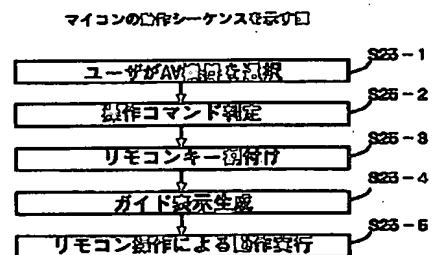 マイコンの動作シーケンスを示す図
S25-1
ユーザがAV機器を選択
S25-2
操作コマンド判定
S25-3
リモコンキー割付け
S25-4
ガイド表示生成
S25-5
リモコン操作による動作実行